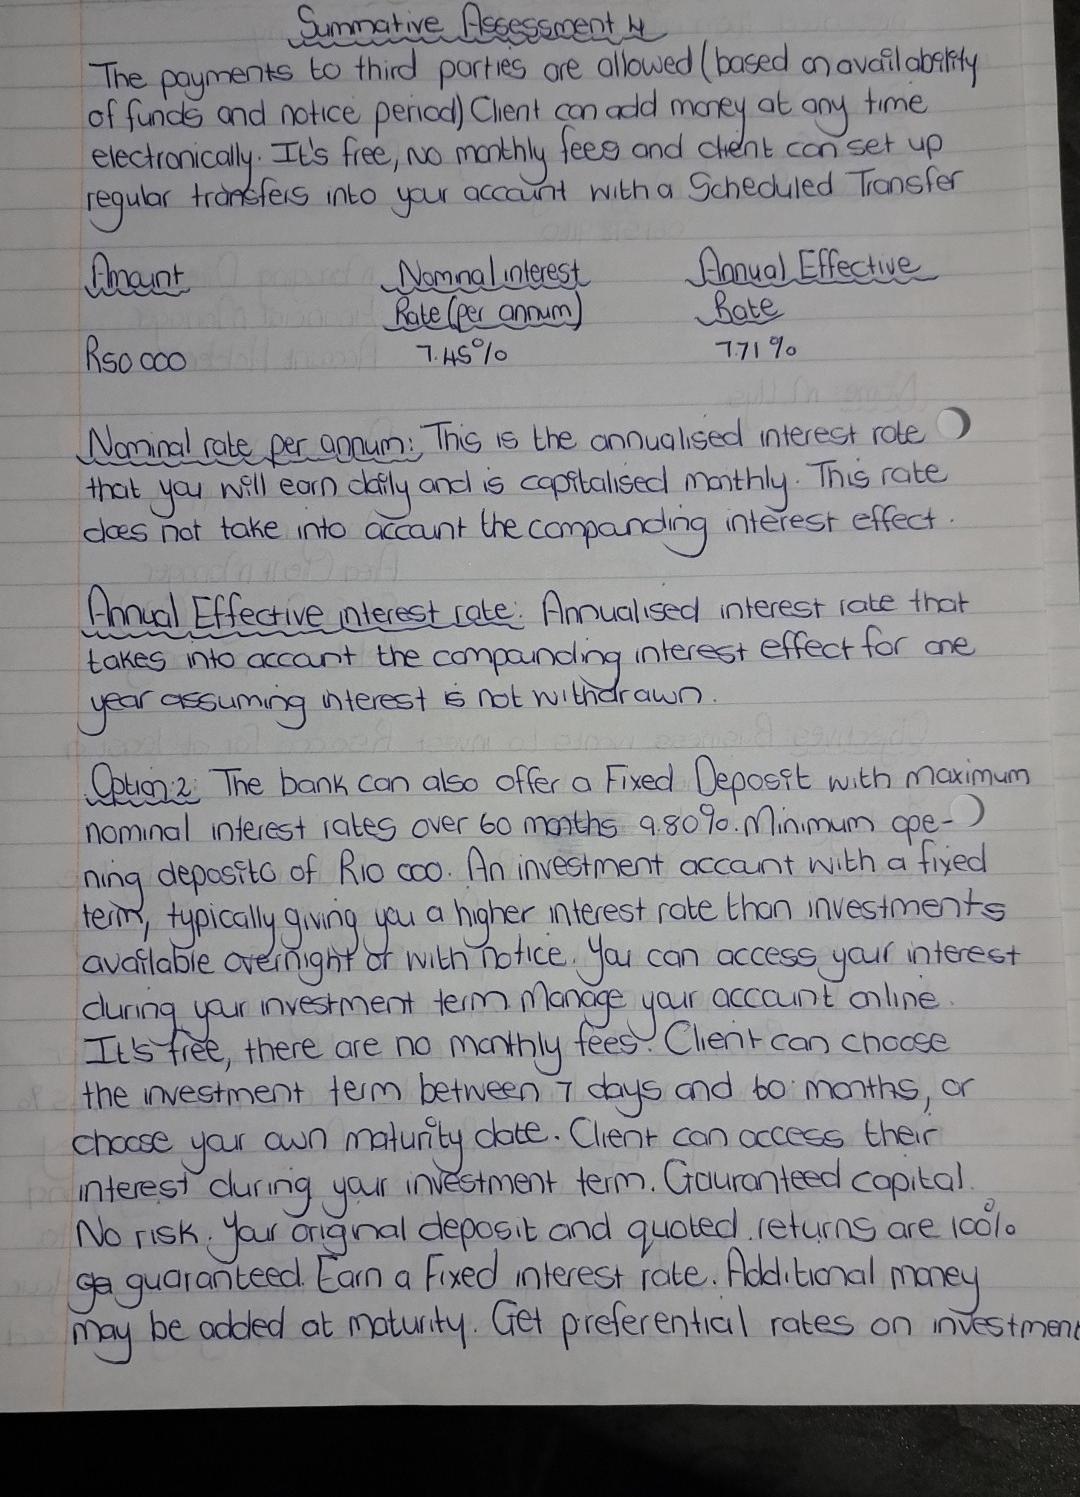 Summative Assessment 4
The payments to third parties are allowed (based on availability
of funds and notice period) Client can add money at any time
electronically. It's free, no monthly fees and client can set up
regular transfers into your account with a Scheduled Transfer
Amount Nominal interest Annual Effective
Rate (per annum) Rate
R50 000 7.45% 7.71%
Nominal rate per annum: This is the annualised interest rate
that you will earn daily and is capitalised monthly. This rate
does not take into account the compounding interest effect.
Annual Effective interest rate: Annualised interest rate that
takes into account the compounding interest effect for one
year assuming interest is not withdrawn.
Option:2: The bank can also offer a Fixed Deposit with maximum
nominal interest rates over 60 months 9.80%. Minimum ope-
ning deposits of R10 000. An investment account with a fixed
term, typically giving you a higher interest rate than investments
available overnight or with notice. You can access your interest
during your investment term Manage your account online.
It's free, there are no monthly fees. Client can choose
the investment term between 7 days and 60 months, or
choose your own maturity date. Client can access their
interest during your investment term. Gauranteed capital.
No risk. Your original deposit and quoted returns are 100%
guaranteed. Earn a Fixed interest rate. Additional money
may be added at maturity. Get preferential rates on investment